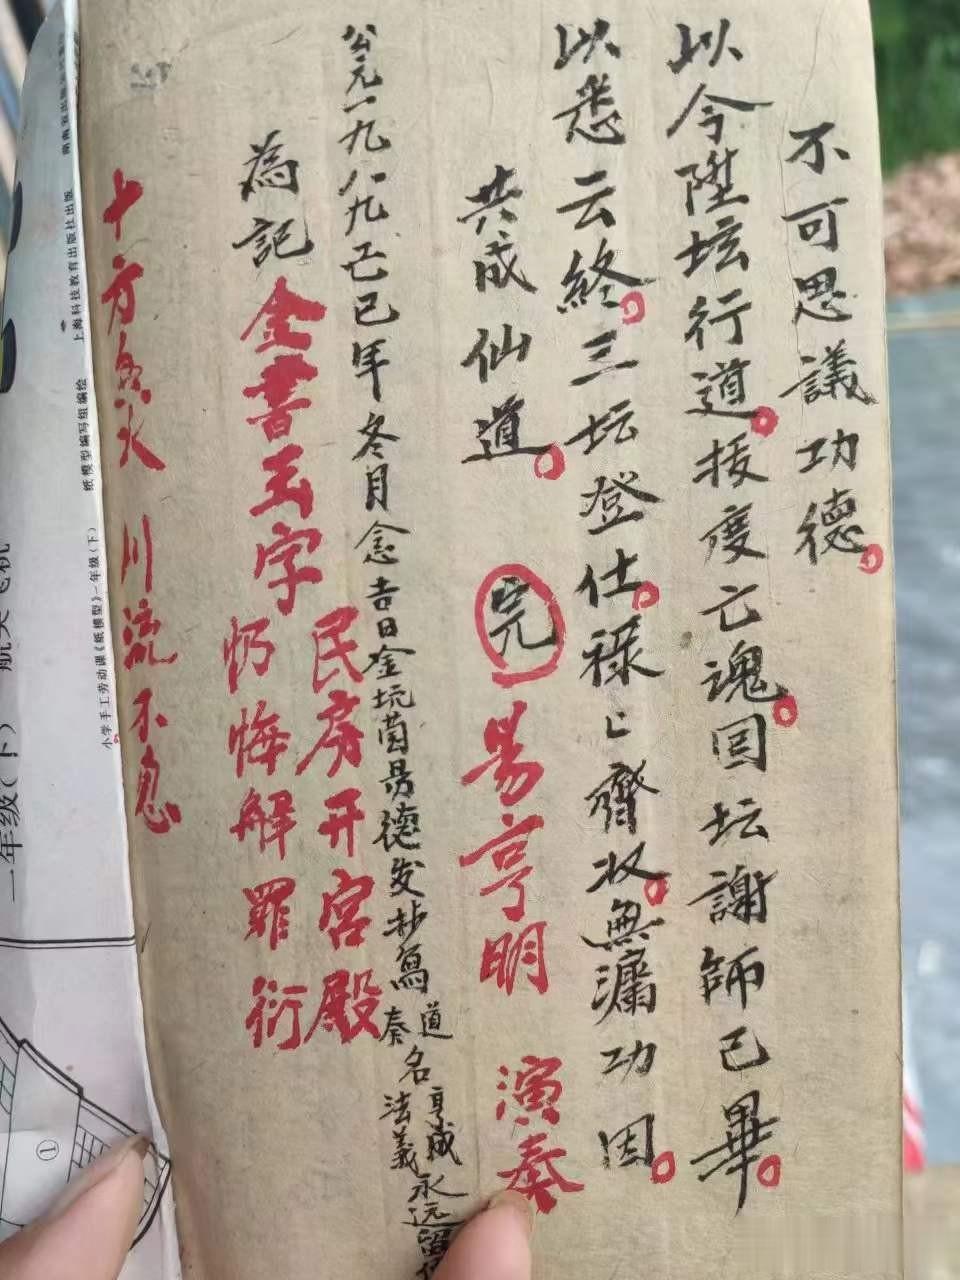 不可思議功德。
以今陞坛行道。拔度亡魂。回坛謝師已畢。
以悉云終。三坛登仕。禄亡齊收。無漏功因。
共成仙道。 完 易亨明 演奏
公元一九八九己巳年冬月念吉日金坑茵易德发抄寫
道 亨成
奏名法義永远留
為記 金書玉字
民房开宫殿
忏悔解罪衍
十方 火 川流不息
小学手工劳动课《纸模型》一年级（下）
纸模型编写组编绘
上海科技教育出版社出版
一年级（下）
①